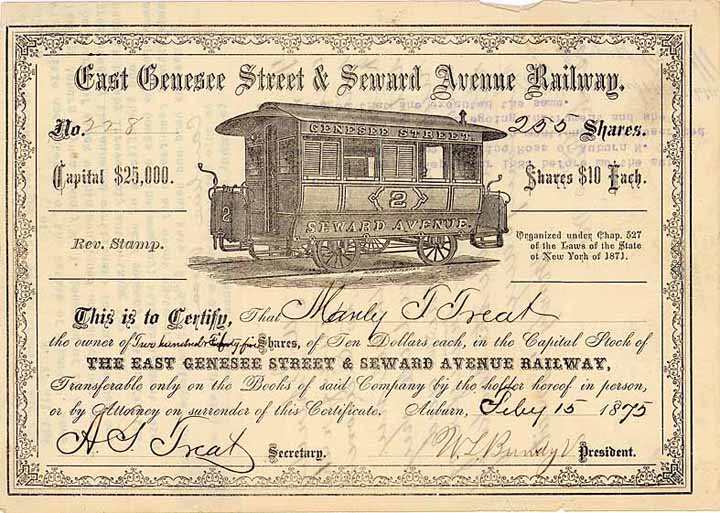 East Genesee Street & Seward Avenue Railway.
No. 228
Shares.
Capital $25,000.
Shares $10 Each.
GENESEE STREET.
2
2
SEWARD AVENUE.
Rev. Stamp.
Organized under Chap. 527
of the Laws of the State
of New York of 1871.
This is to Certify, That Manly T Treat
the owner of Two hundred & fifty five Shares, of Ten Dollars each, in the Capital Stock of
THE EAST GENESEE STREET & SEWARD AVENUE RAILWAY,
Transferable only on the Books of said Company by the holder hereof in person,
or by Attorney on surrender of this Certificate. Auburn, Feby 15 1875
A. S. Treat Secretary. W L Bundy President.